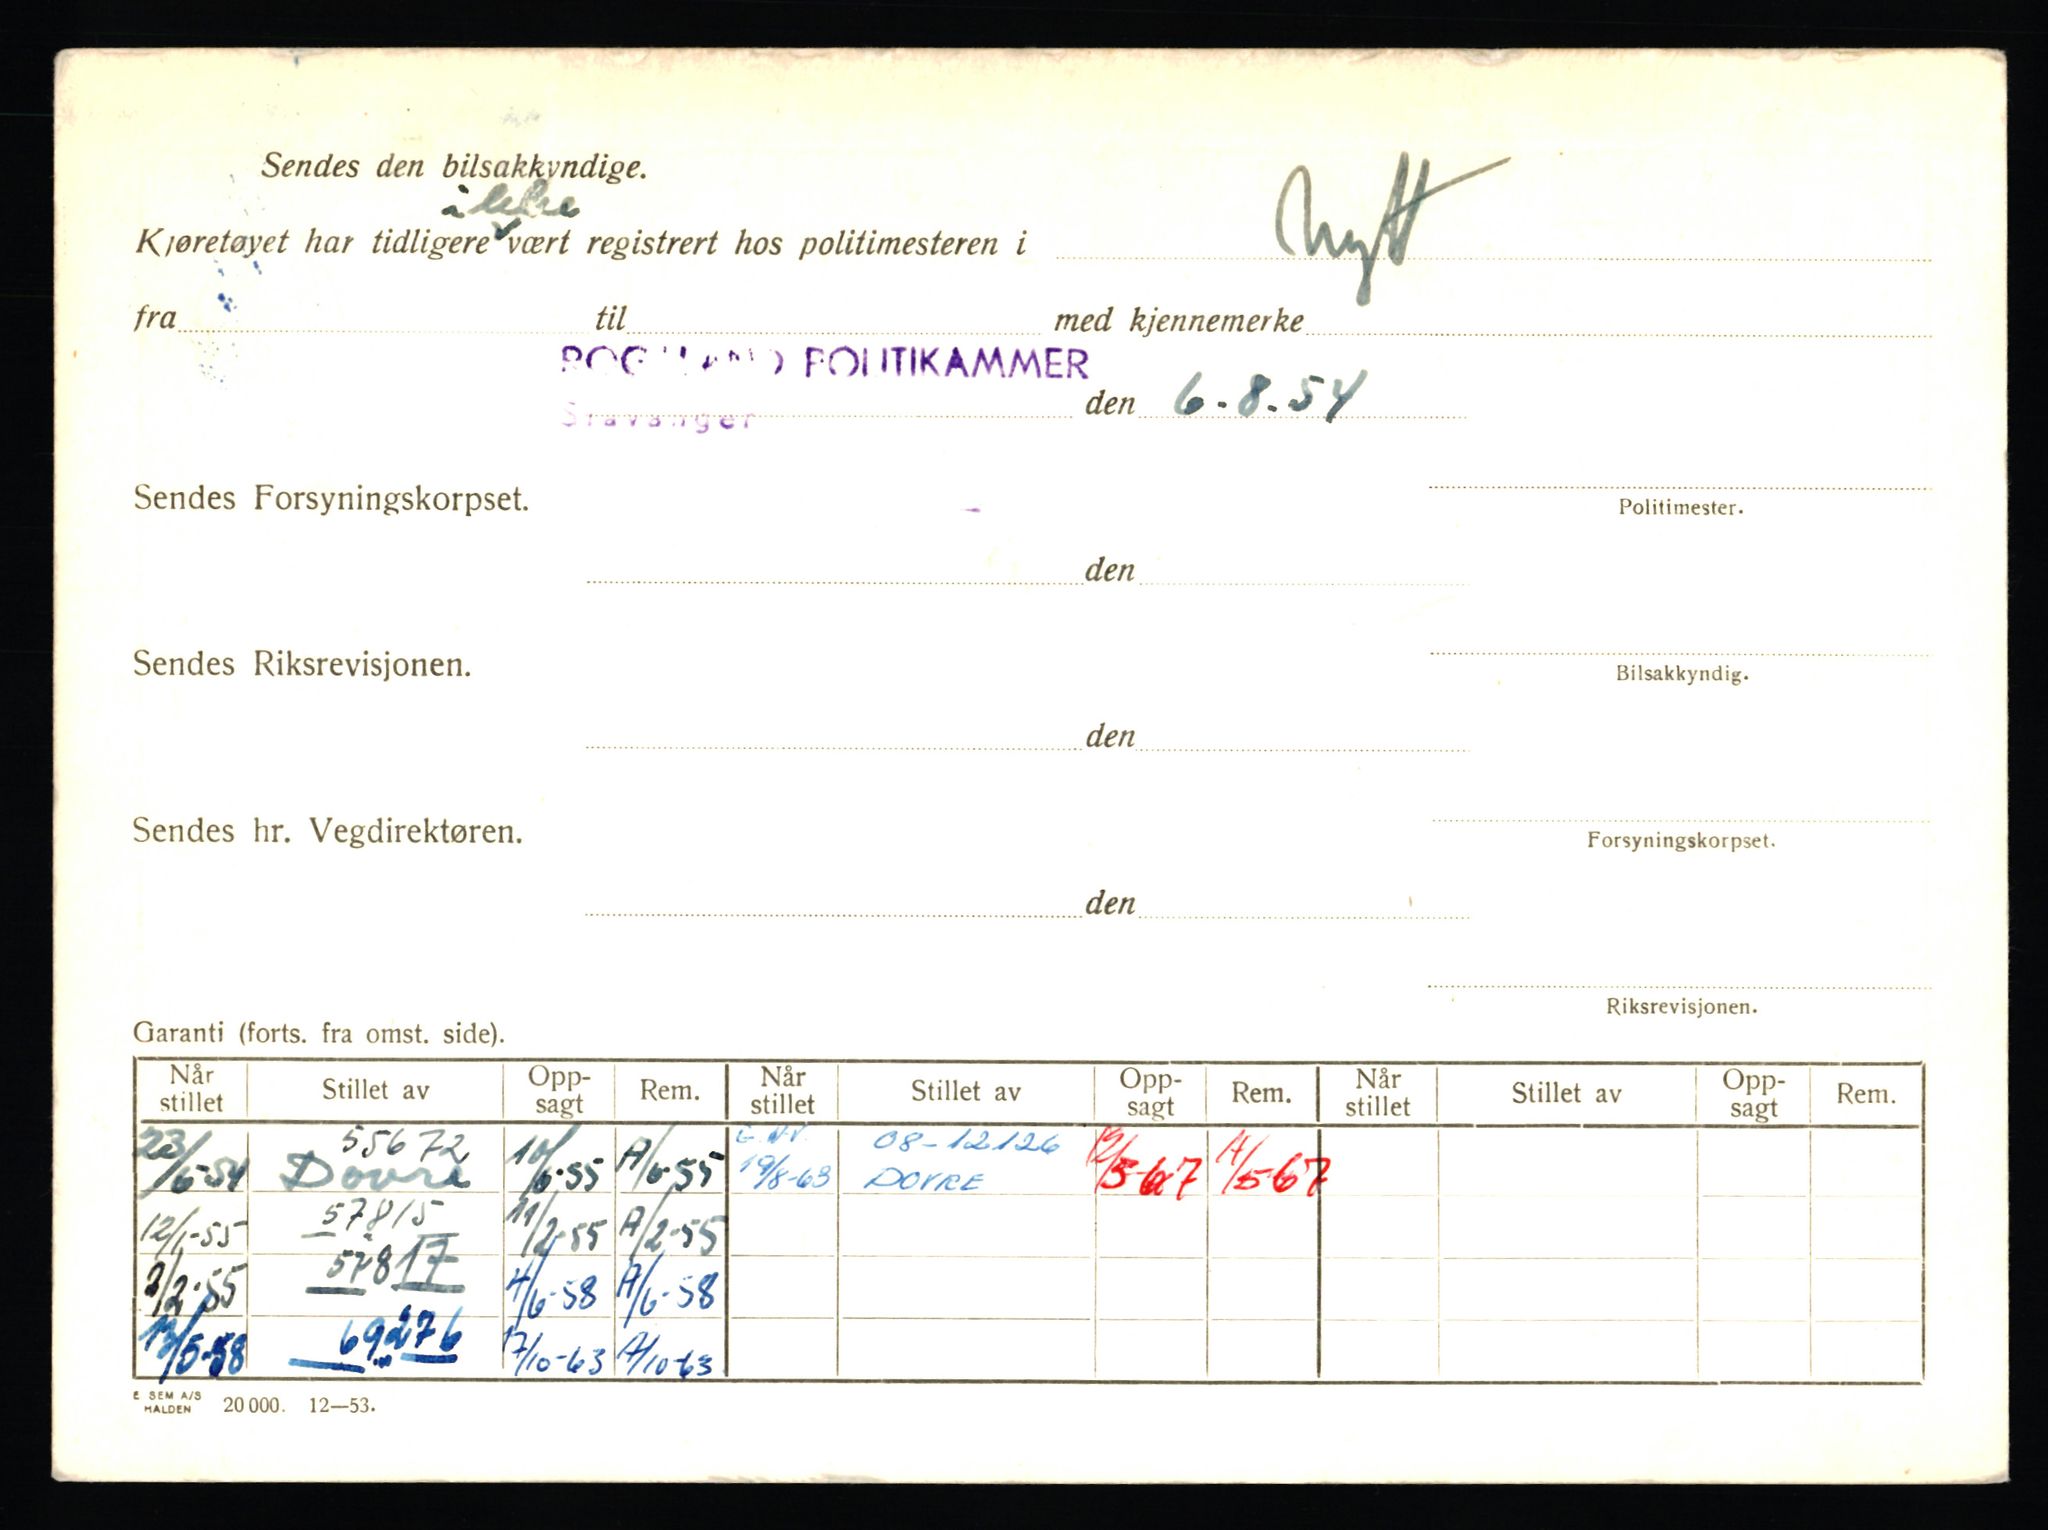 Sendes den bilsakkyndige.
ikke
Kjøretøyet har tidligere vært registrert hos politimesteren i Nytt
fra til med kjennemerke
ROGALAND POLITIKAMMER
Stavanger den 6-8-54
Sendes Forsyningskorpset.
Politimester.
den
Sendes Riksrevisjonen.
Bilsakkyndig.
den
Sendes hr. Vegdirektøren.
Forsyningskorpset.
den
Riksrevisjonen.
Garanti (forts. fra omst. side).
Når stillet Stillet av Opp-sagt Rem. Når stillet Stillet av Opp-sagt Rem. Når stillet Stillet av Opp-sagt Rem.
55672 08-12126
23/6-54 Dovre 10/6-55 A/6-55 19/8-63 DOVRE 19/5-67 A/5-67
12/1-55 57815 11/2-55 A/2-55
2/2-55 57817 4/6-58 A/6-58
13/5-58 69276 17/10-63 A/10-63
E SEM A/S
HALDEN 20 000. 12—53.